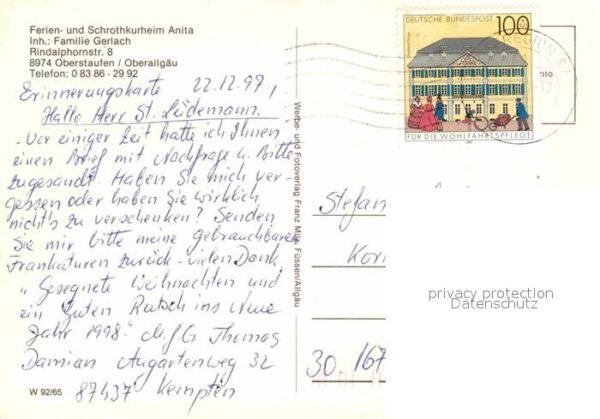 Ferien- und Schrothkurheim Anita
Inh.: Familie Gerlach
Rindalphornstr. 8
8974 Oberstaufen / Oberallgäu
Telefon: 0 83 86 - 29 92
Erinnerungskarte 22.12.97,
Hallo Herr St. Lüdemann.
Vor einiger Zeit hatte ich Ihnen
einen Brief mit Nachfrage u. Bitte
zugesandt. Haben Sie mich ver-
gessen oder haben Sie wirklich
nichts zu verschenken? Senden
Sie mir bitte meine gebrauchbaren
Frankaturen zurück - vielen Dank
"Gesegnete Weihnachten und
ein Guten Rutsch ins neue
Jahr 1998." M.f.G. Thomas
Damian Augartenweg 32
87437 Kempten
W 92/65
Werbe- und Fotoverlag Franz Milz Füssen/Allgäu
DEUTSCHE BUNDESPOST
100
FÜR DIE WOHLFAHRTSPFLEGE
oto
Stefan
Kor
30 167
privacy protection
Datenschutz